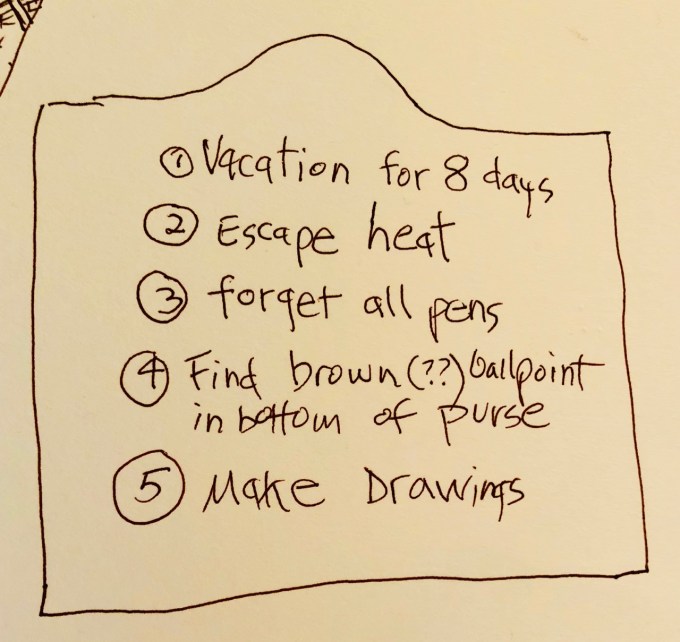 ① Vacation for 8 days
② Escape heat
③ forget all pens
④ Find brown (??) ballpoint
in bottom of purse
⑤ Make Drawings